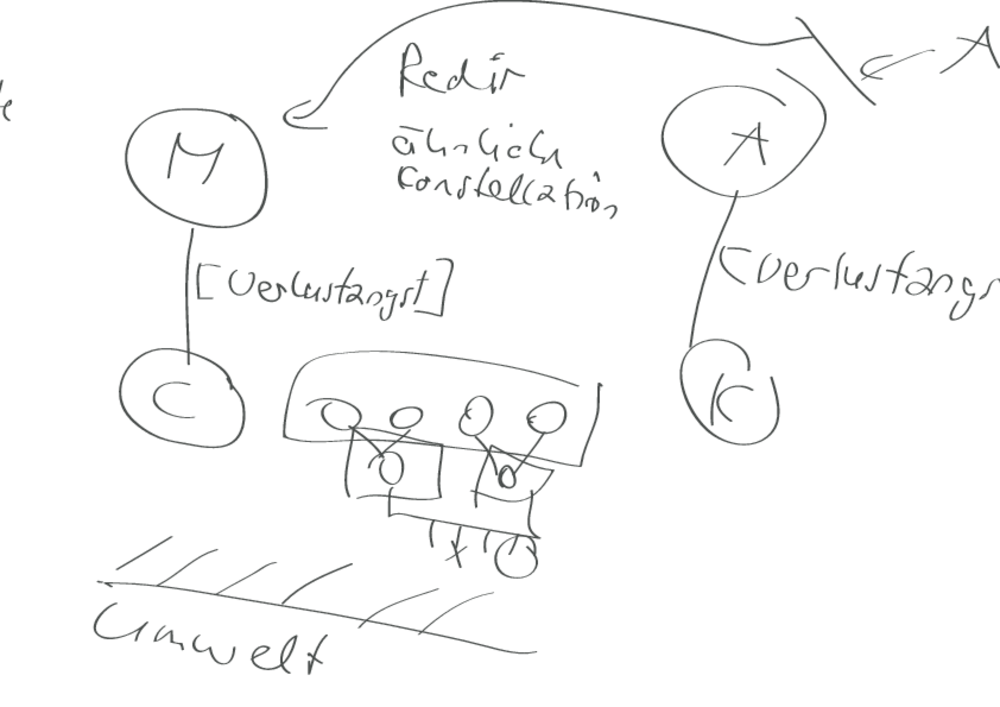 A
Redir
M
A
ähnlich
Konstellation
[Verlustangst]
[Verlustangs
C
K
Umwelt